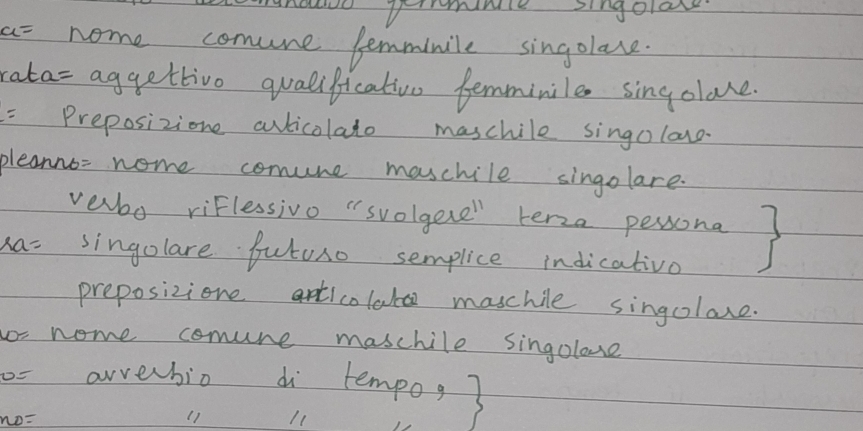 femminile singolare.
a= nome comune femminile singolare.
rata= aggettivo qualificativo femminile singolare.
= Preposizione articolato maschile singolare.
pleanno= nome comune maschile singolare.
verbo riflessivo "svolgere" terza persona }
ra= singolare futuro semplice indicativo
preposizione articolata maschile singolare.
o= nome comune maschile singolare
o= avverbio di tempo, }
no= " " "